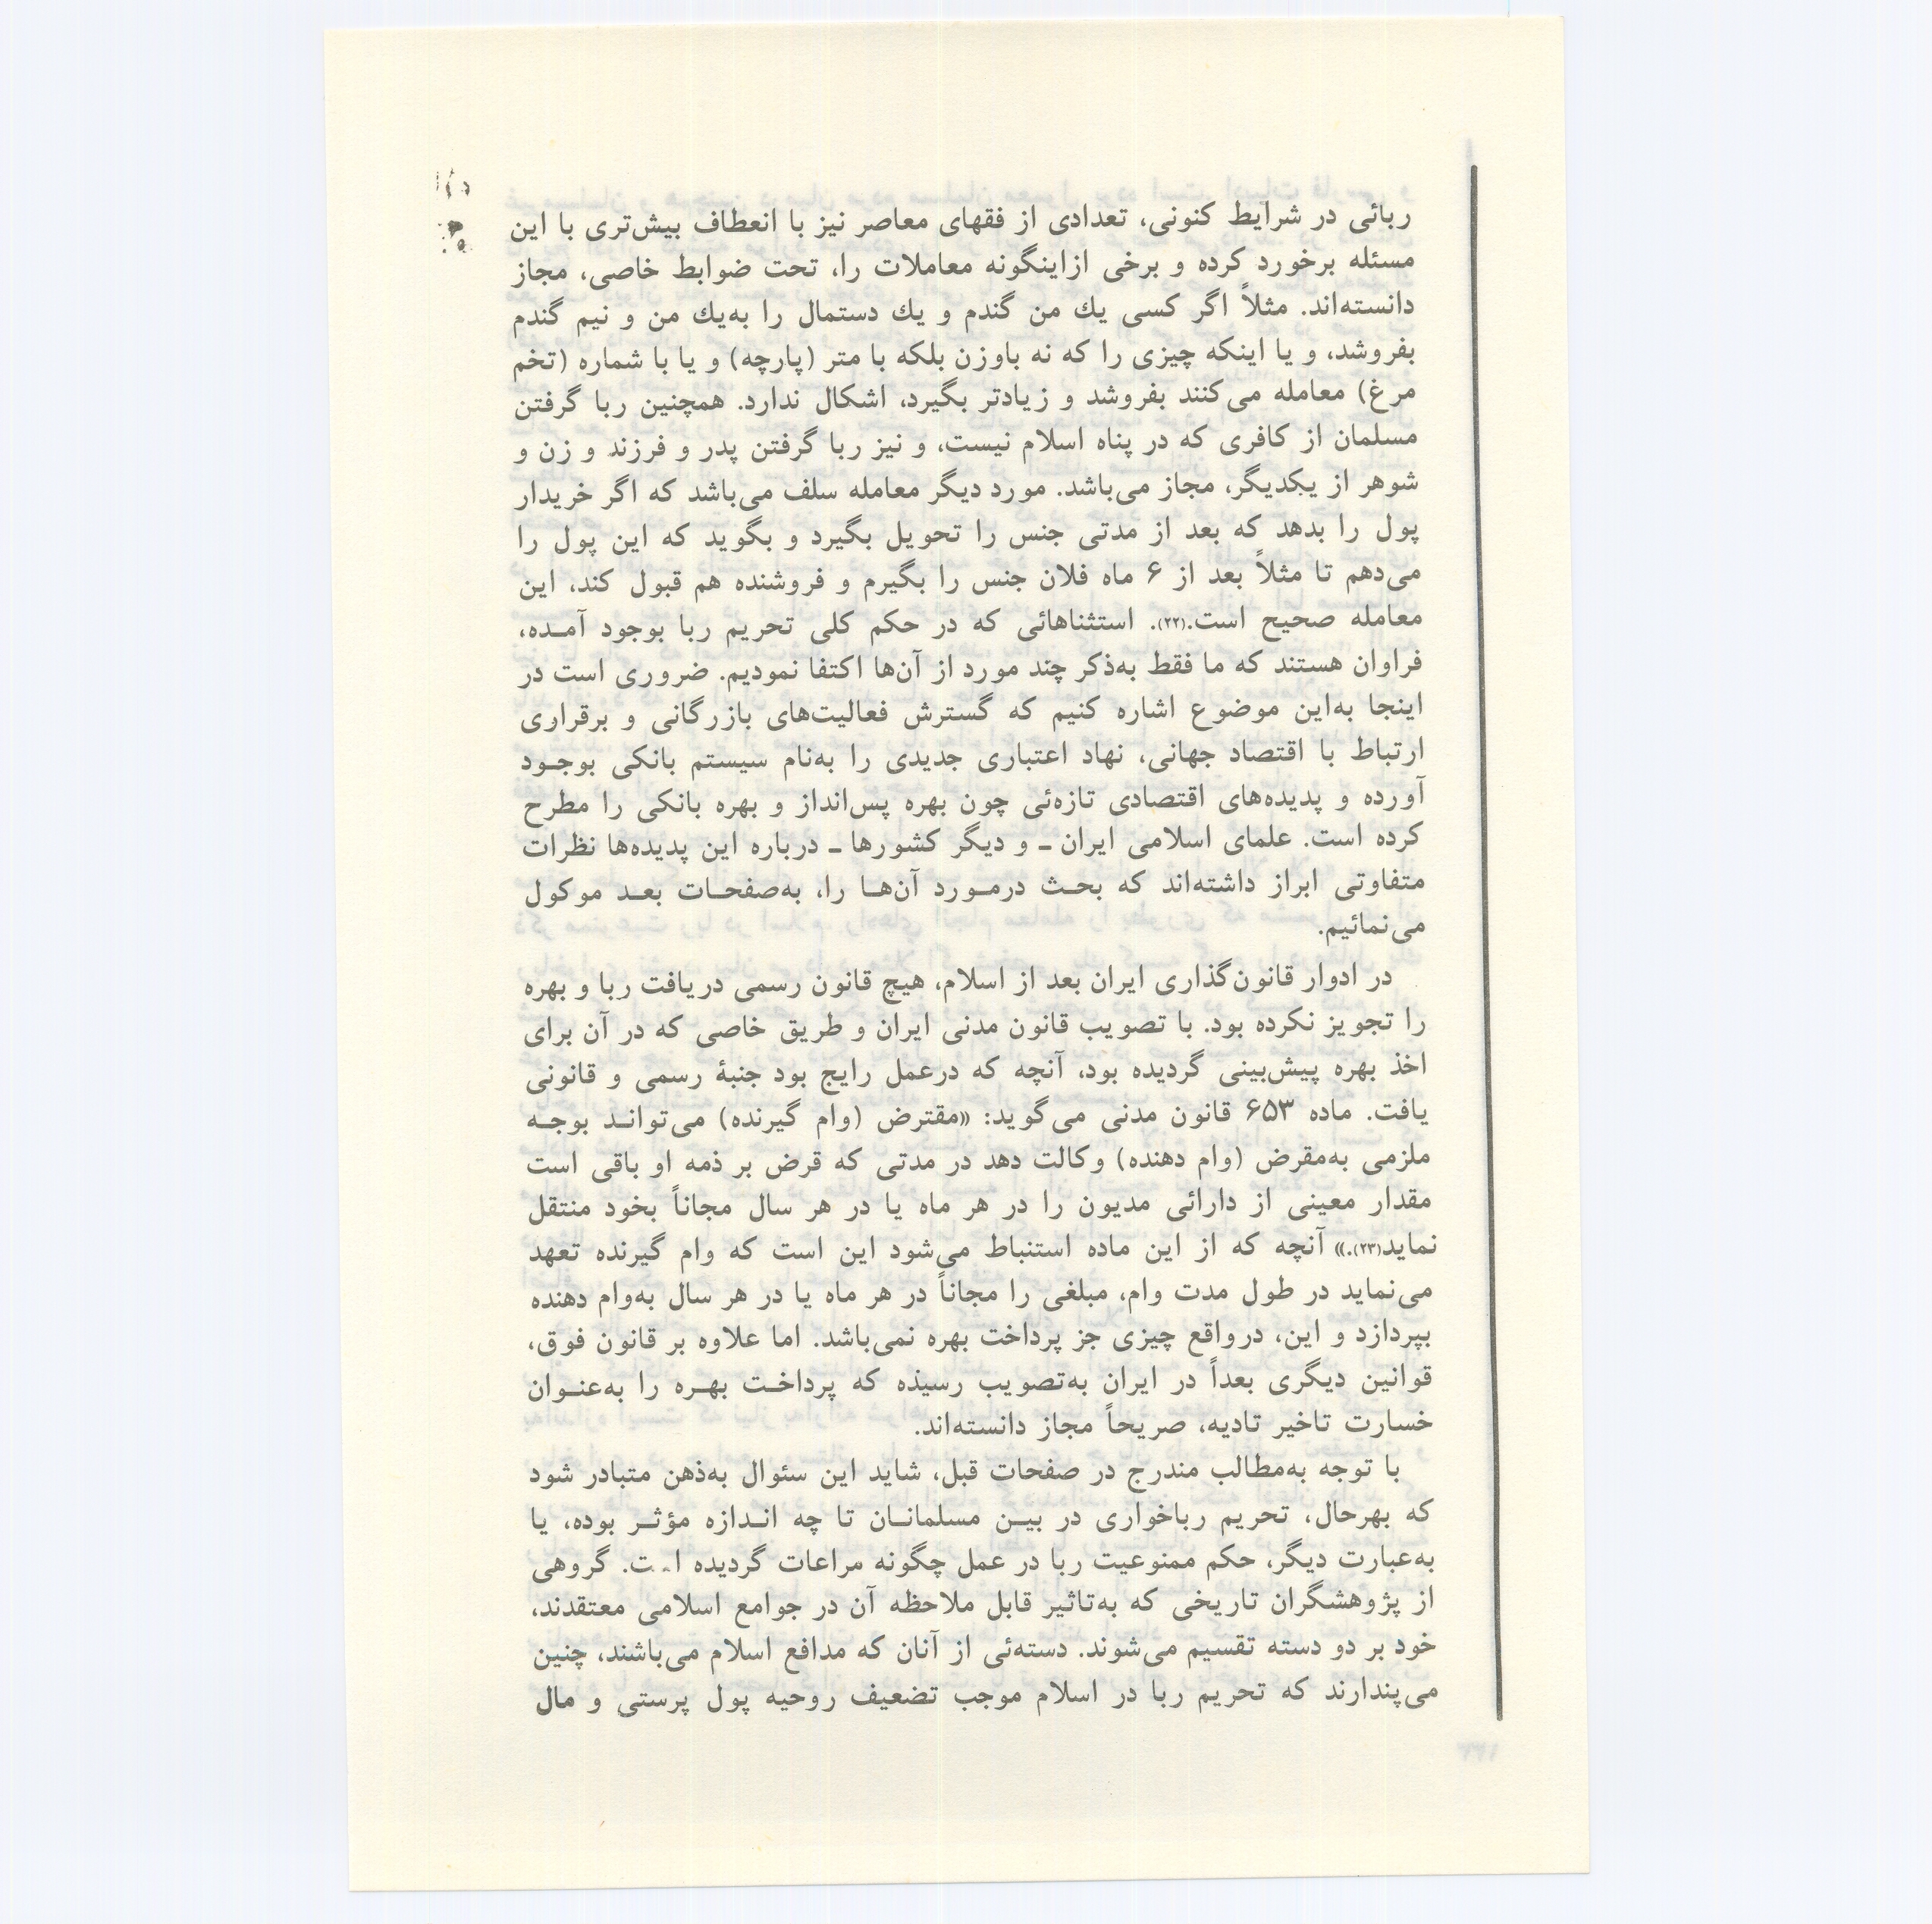 ربائی در شرایط کنونی، تعدادی از فقهای معاصر نیز با انعطاف بیش‌تری با این
مسئله برخورد کرده و برخی ازاینگونه معاملات را، تحت ضوابط خاصی، مجاز
دانسته‌اند. مثلاً اگر کسی یك من گندم و یك دستمال را به‌یك من و نیم گندم
بفروشد، و یا اینکه چیزی را که نه باوزن بلکه با متر (پارچه) و یا با شماره (تخم
مرغ) معامله می‌کنند بفروشد و زیادتر بگیرد، اشکال ندارد. همچنین ربا گرفتن
مسلمان از کافری که در پناه اسلام نیست، و نیز ربا گرفتن پدر و فرزند و زن و
شوهر از یکدیگر، مجاز می‌باشد. مورد دیگر معامله سلف می‌باشد که اگر خریدار
پول را بدهد که بعد از مدتی جنس را تحویل بگیرد و بگوید که این پول را
می‌دهم تا مثلاً بعد از ۶ ماه فلان جنس را بگیرم و فروشنده هم قبول کند، این
معامله صحیح است.(۲۲). استثناهائی که در حکم کلی تحریم ربا بوجود آمـده،
فراوان هستند که ما فقط به‌ذکر چند مورد از آن‌ها اکتفا نمودیم. ضروری است در
اینجا به‌این موضوع اشاره کنیم که گسترش فعالیت‌های بازرگانی و برقراری
ارتباط با اقتصاد جهانی، نهاد اعتباری جدیدی را به‌نام سیستم بانکی بوجـود
آورده و پدیده‌های اقتصادی تازه‌ئی چون بهره پس‌انداز و بهره بانکی را مطرح
کرده است. علمای اسلامی ایران ـ و دیگر کشورها ـ درباره این پدیده‌ها نظرات
متفاوتی ابراز داشته‌اند که بحـث درمـورد آن‌هـا را، به‌صفحـات بعـد موکول
می‌نمائیم.
در ادوار قانون‌گذاری ایران بعد از اسلام، هیچ قانون رسمی دریافت ربا و بهره
را تجویز نکرده بود. با تصویب قانون مدنی ایران و طریق خاصی که در آن برای
اخذ بهره پیش‌بینی گردیده بود، آنچه که درعمل رایج بود جنبهٔ رسمی و قانونی
یافت. ماده ۶۵۳ قانون مدنی می‌گوید: «مقترض (وام گیرنده) می‌توانـد بوجـه
ملزمی به‌مقرض (وام دهنده) وکالت دهد در مدتی که قرض بر ذمه او باقی است
مقدار معینی از دارائی مدیون را در هر ماه یا در هر سال مجاناً بخود منتقل
نماید(۲۳).» آنچه که از این ماده استنباط می‌شود این است که وام گیرنده تعهد
می‌نماید در طول مدت وام، مبلغی را مجاناً در هر ماه یا در هر سال به‌وام دهنده
بپردازد و این، درواقع چیزی جز پرداخت بهره نمی‌باشد. اما علاوه بر قانون فوق،
قوانین دیگری بعداً در ایران به‌تصویب رسیذه که پرداخـت بهـره را به‌عنـوان
خسارت تاخیر تادیه، صریحاً مجاز دانسته‌اند.
با توجه به‌مطالب مندرج در صفحات قبل، شاید این سئوال به‌ذهن متبادر شود
که بهرحال، تحریم رباخواری در بیـن مسلمانـان تا چه انـدازه مؤثـر بوده، یا
به‌عبارت دیگر، حکم ممنوعیت ربا در عمل چگونه مراعات گردیده است. گروهی
از پژوهشگران تاریخی که به‌تاثیر قابل ملاحظه آن در جوامع اسلامی معتقدند،
خود بر دو دسته تقسیم می‌شوند. دسته‌ئی از آنان که مدافع اسلام می‌باشند، چنین
می‌پندارند که تحریم ربا در اسلام موجب تضعیف روحیه پول پرستی و مال